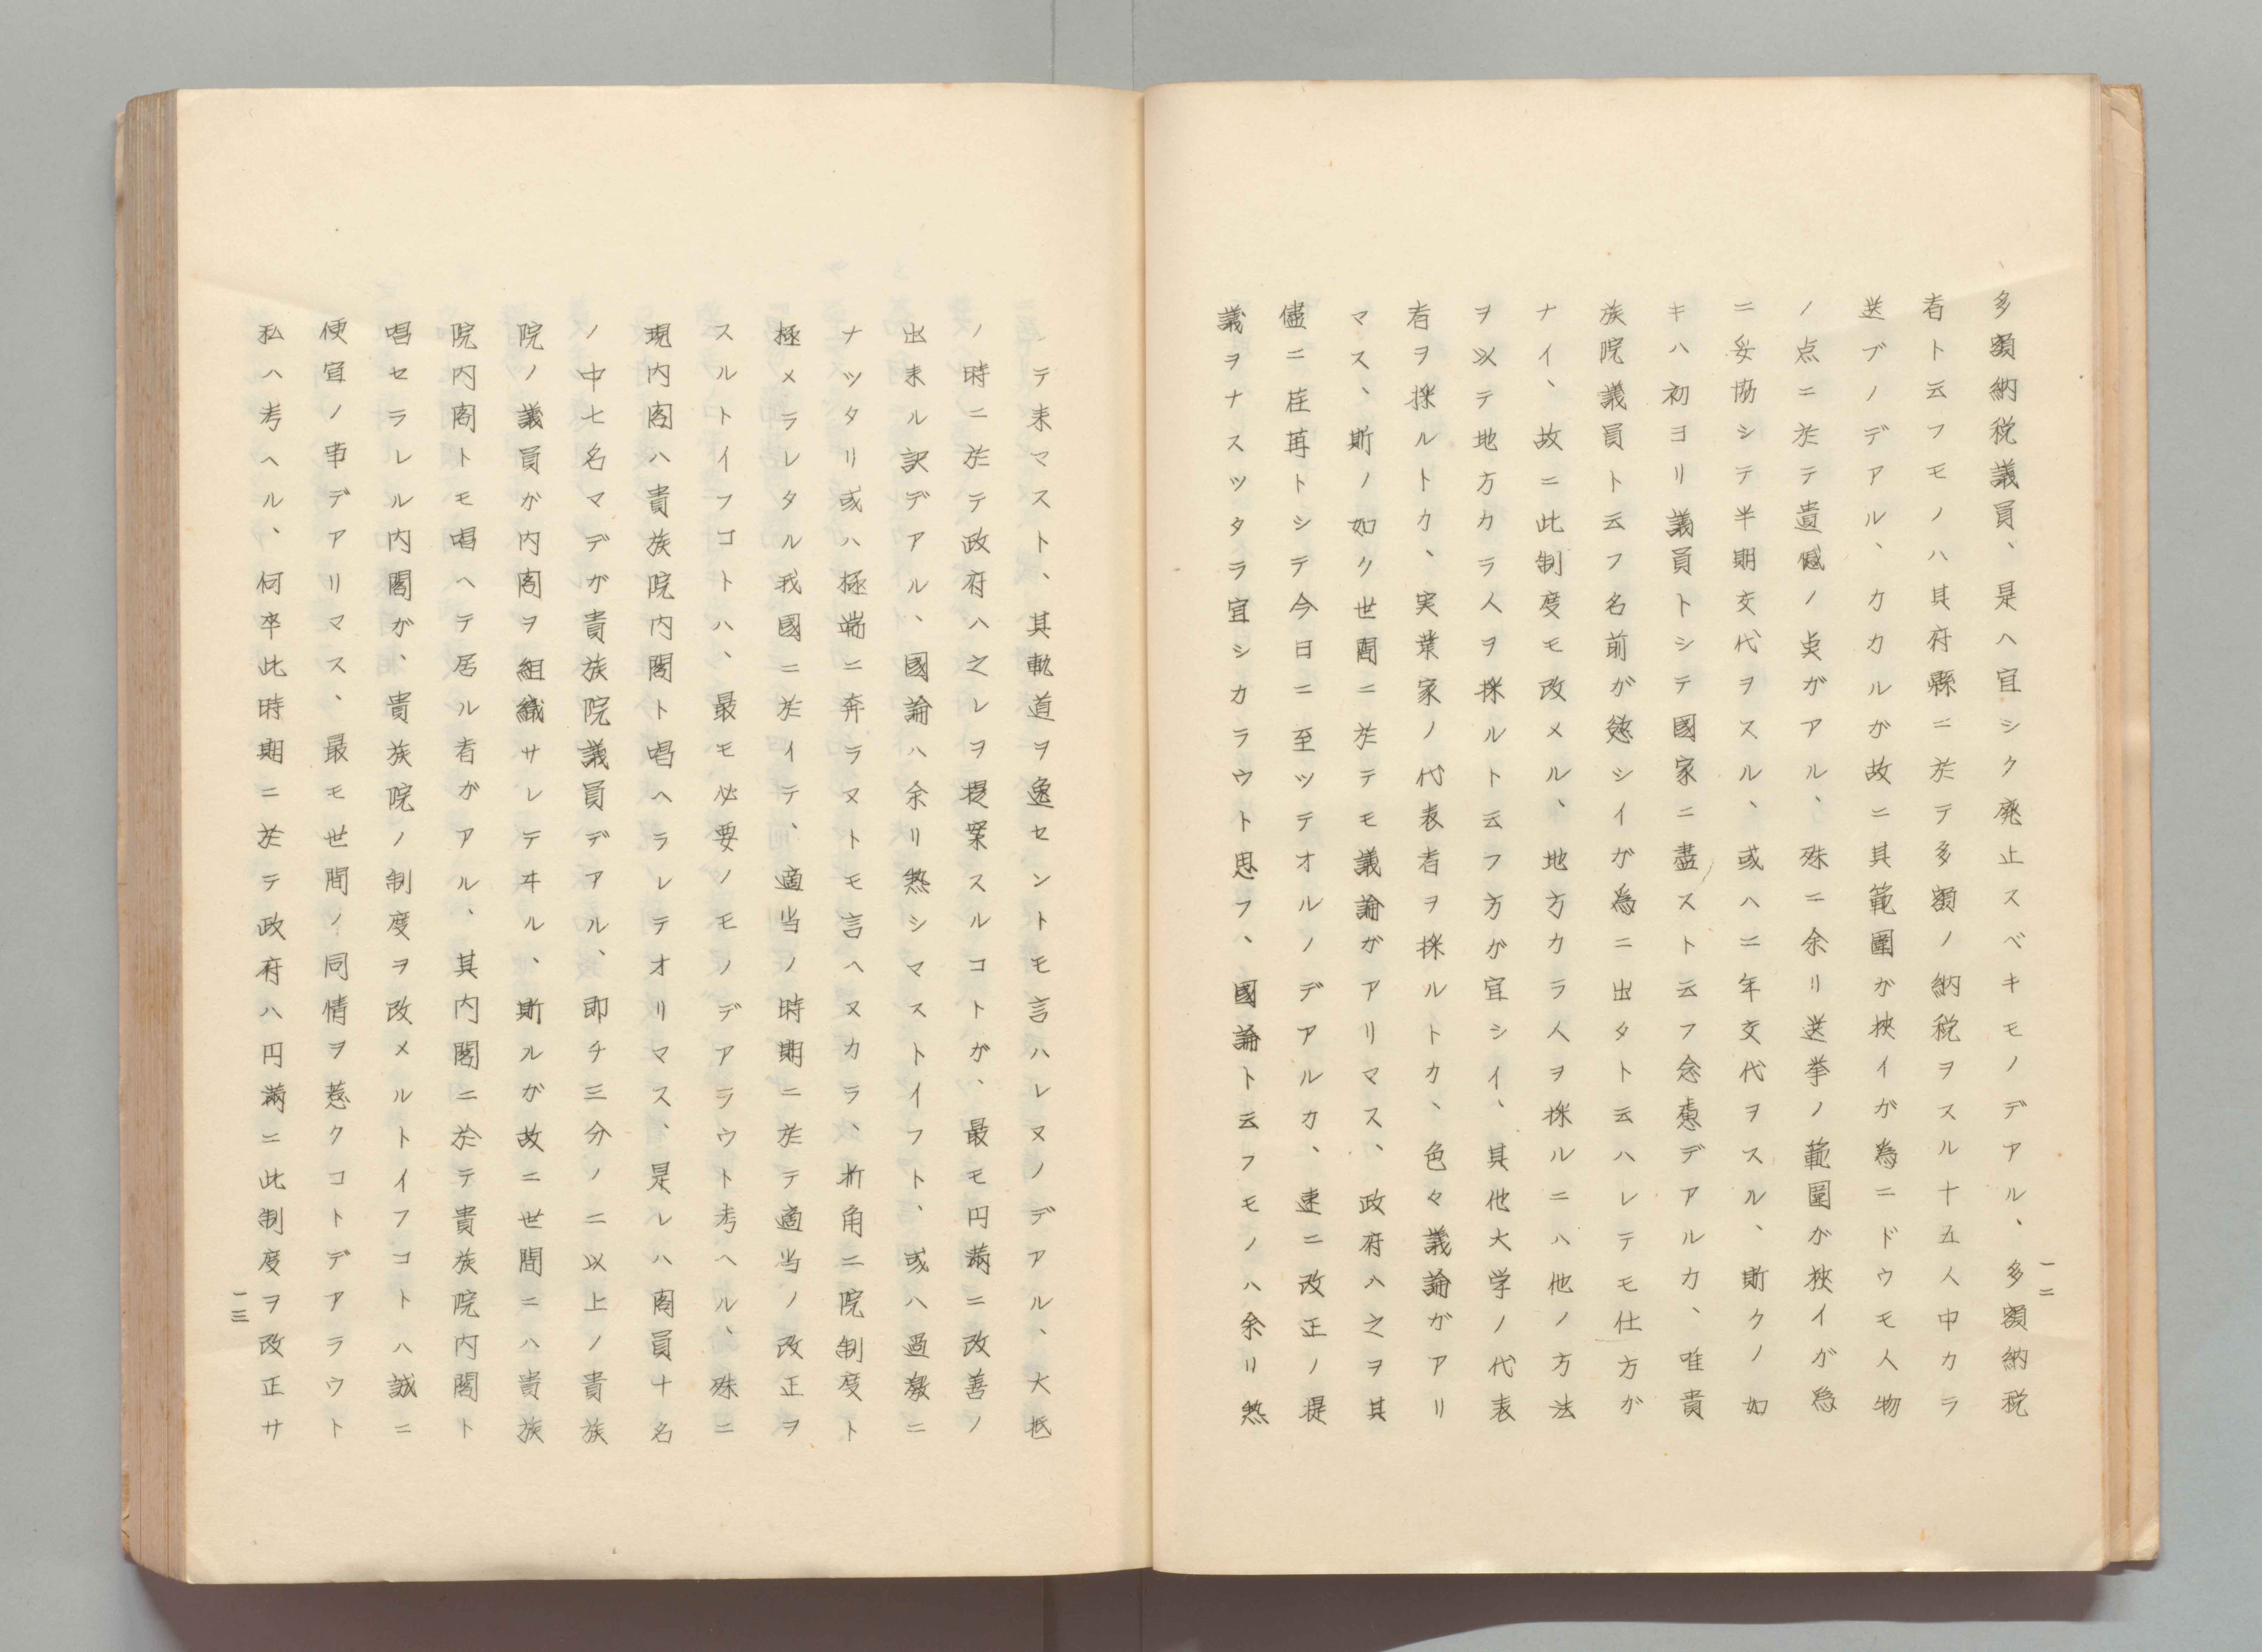 多額納税議員、是ハ宜シク廃止スベキモノデアル、多額納税
者ト云フモノハ其府縣ニ於テ多額ノ納税ヲスル十五人中カラ
送ブノデアル、カカルが故ニ其範圍が挾イが為ニドウモ人物
ノ点ニ於テ遺憾ノ点がアル、殊ニ余リ送挙ノ範圍が挾イが為
ニ妥協シテ半期交代ヲスル、或ハ二年交代ヲスル、斯クノ如
キハ初ヨリ議員トシテ國家ニ盡ストニ云フ念慮デアルカ、唯貴
族院議員ト云フ名前が慾シイが為ニ出タト云ハレテモ仕方が
ナイ、故ニ此制度モ改メル、地方カラ人ヲ採ルニハ他ノ方法
ヲ以テ地方カラ人ヲ採ルト云フ方が宜シイ、其他大学ノ代表
者ヲ採ルトカ、実業家ノ代表者ヲ採ルトカ、色々議論がアリ
マス、斯ノ如ク世間ニ於テモ議論がアリマス、政府ハ之ヲ其
儘ニ荏苒トシテ今日ニ至ツテオルノデアルカ、速ニ改正ノ提
議ヲナスツタラ宜シカラウト思フ、國論ト云フモノハ余リ熱
一二
シテ来マスト、其軌道ヲ逸セントモ言ハレヌノデアル、大抵
ノ時ニ於テ政府ハ之レヲ提案スルコトが、最モ円満ニ改善ノ
出来ル訳デアル、國論ハ余リ熱シマストイフト、或ハ過激ニ
ナツタリ或ハ極端ニ奔ラヌトモ言ヘヌカラ、折角二院制度ト
極メラレタル我國ニ於イテ、適当ノ時期ニ於テ適当ノ改正ヲ
スルトイフコトハ、最モ必要ノモノデアラウト考ヘル、殊ニ
現内閣ハ貴族院内閣ト唱ヘラレテオリマス、是レハ閣員十名
ノ中七名マデが貴族院議員デアル、即チ三分ノ二以上ノ貴族
院ノ議員が内閣ヲ組織サレテヰル、斯ルが故ニ世間ニハ貴族
院内閣トモ唱ヘテ居ル者がアル、其内閣ニ於テ貴族院内閣ト
唱セラレル内閣が、貴族院ノ制度ヲ改メルトイフコトハ誠ニ
便宜ノ事デアリマス、最モ世間ノ同情ヲ惹クコトデアラウト
私ハ考ヘル、何卒此時期ニ於テ政府ハ円満ニ此制度ヲ改正サ
一三